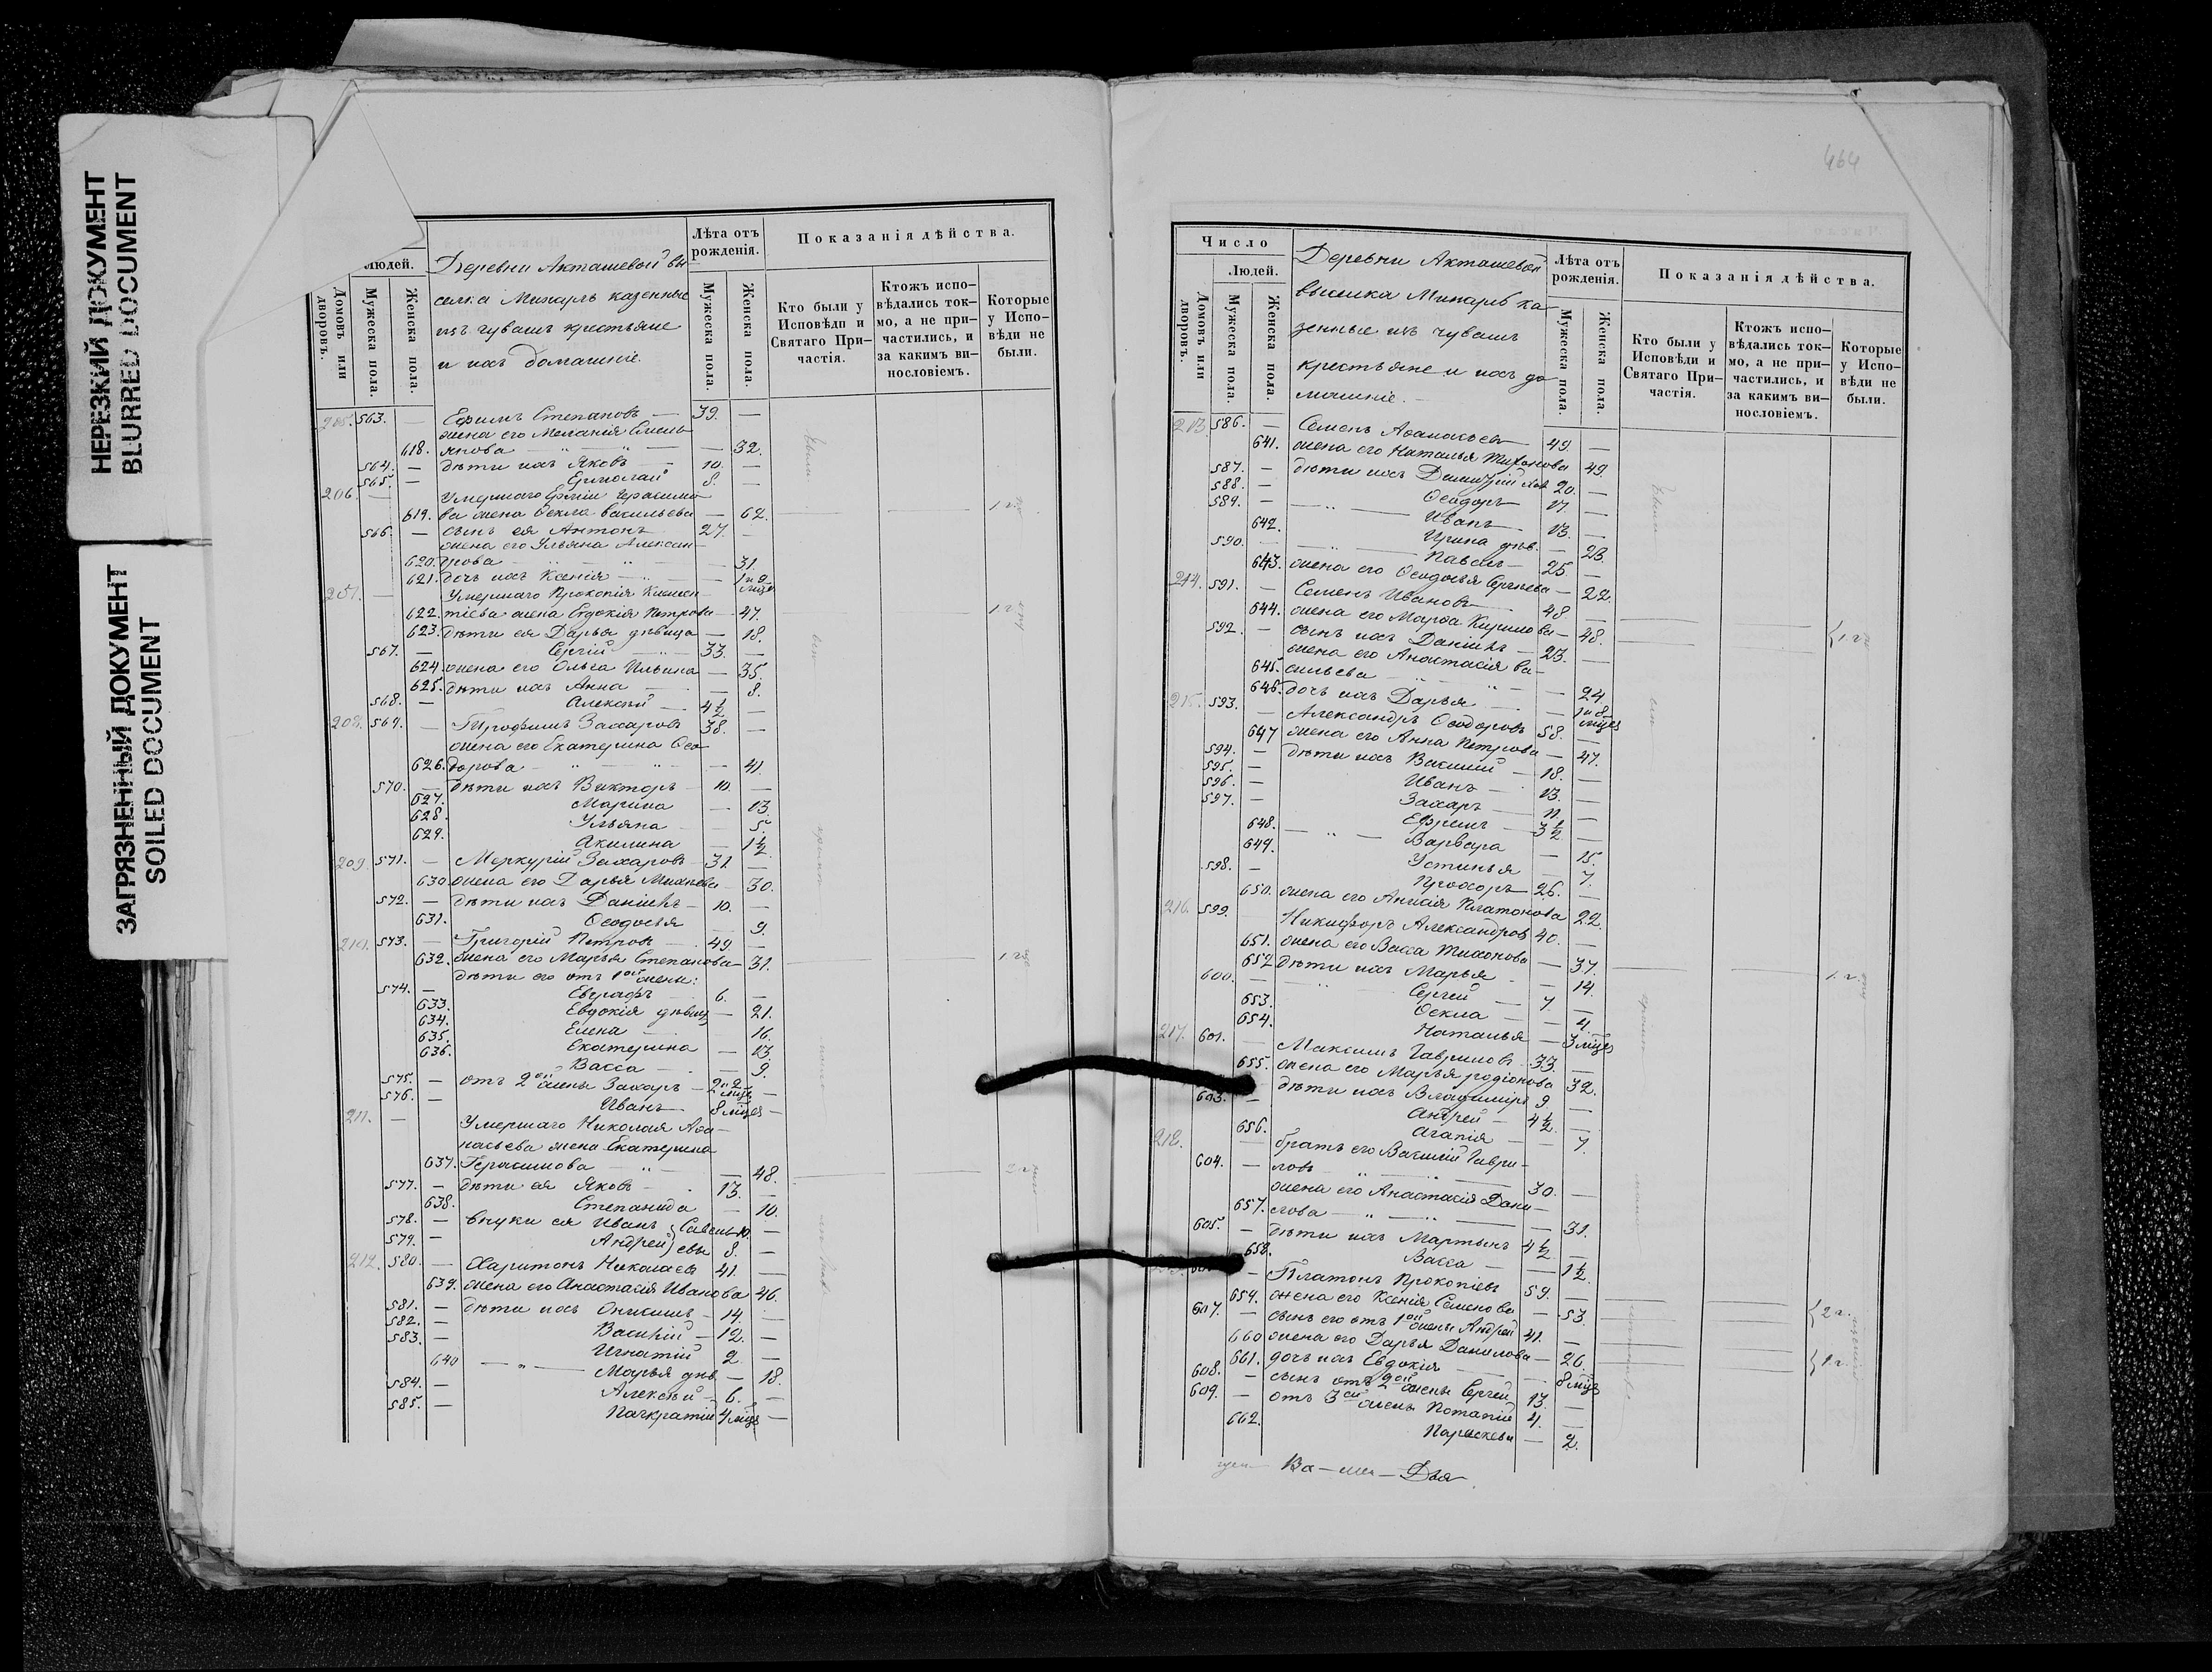 НЕРЕЗКИЙ ДОКУМЕНТ
BLURRED DOCUMENT
ЗАГРЯЗНЕННЫЙ ДОКУМЕНТ
SOILED DOCUMENT
Людей.
Домовъ или дворовъ.
Мужеска пола.
Женска пола.
Деревни Акташевой вы
селка Мижаръ казенные
изъ чувашъ крестьяне
и ихъ домашніе.
Лѣта отъ рожденія.
Мужеска пола.
Женска пола.
Показанія дѣйства.
Кто были у Исповѣди и Святаго Причастія.
Ктожъ исповѣдались токмо, а не причастились, и за какимъ винословіемъ.
Которые у Исповѣди не были.
205. 563. — Ефимъ Степановъ — 39. —
жена его Меланія Емель
618. янова — — 32.
564. — дѣти ихъ Яковъ — 10. —
565. — Ермолай 8. —
206. — Умершаго Ефрема Герасимо
619. ва жена Ѳекла Васильева — 62. 1 г.
566. — сынъ ея Антонъ 27. —
жена его Ульяна Алексан
620. дрова — 31.
621. дочь ихъ Ксенія — 1 и 9 мѣс.
207. — Умершаго Прокопія Климен
622. тіева жена Евдокія Петрова — 47. 1 г.
623. дѣти ея Дарья дѣвица — 18.
567. — Сергій — 33. —
624. жена его Ольга Ильина — 35.
625. дѣти ихъ Анна — 8.
568. — Алексѣй — 4½ —
208. 569. — Трофимъ Захаровъ 38. —
жена его Екатерина Ѳео
626. дорова — 41.
570. — дѣти ихъ Викторъ — 10. —
627. Марина — 13.
628. Ульяна — 5.
629. Акилина — 1½
209. 571. — Меркурій Захаровъ — 31 —
630. жена его Дарья Михеева — 30.
572. — дѣти ихъ Даніилъ — 10. —
631. Ѳеодосья — 9.
210. 573. — Григорій Петровъ — 49. —
632. жена его Марья Степанова — 31. 1 г.
дѣти его отъ 1ой жены:
574. — Евграфъ 6. —
633. Евдокія дѣвиц. — 21.
634. Елена — 16.
635. Екатерина — 13.
636. Васса — 9.
575. — отъ 2ой жены Захаръ — 2 и 2 мѣс. —
576. — Иванъ 8 мѣсц. —
211. — Умершаго Николая Аѳа
насьева жена Екатерина
637. Герасимова — 48. 2 г.
577. — дѣти ея Яковъ 13. —
638. Степанида — 10.
578. — внуки ея Иванъ } Савель 10. —
579. — Андрей } евы 8. —
212. 580. — Харитонъ Николаевъ 41. —
639. жена его Анастасія Иванова 46.
581. — дѣти ихъ Онисимъ — 14. —
582. — Василій — 12. —
583. — Игнатій 2. —
640 Марья дѣв. — 18.
584. — Алексѣй — 6. —
585. — Панкратій 4 мѣсц. —
464
Число
Людей.
Домовъ или дворовъ.
Мужеска пола.
Женска пола.
Деревни Акташевой
выселка Мижаръ ка
зенные изъ чувашъ
крестьяне и ихъ до
машніе. —
Лѣта отъ рожденія.
Мужеска пола.
Женска пола.
Показанія дѣйства.
Кто были у Исповѣди и Святаго Причастія.
Ктожъ исповѣдались токмо, а не причастились, и за какимъ винословіемъ.
Которые у Исповѣди не были.
213. 586. — Семенъ Аѳанасьевъ 49. —
641. жена его Наталья Тихонова 49.
587. — дѣти ихъ Димитрій 20. —
588. — Ѳеодоръ 17. —
589. — Иванъ 13. —
642. Ирина дѣв. — 23.
590. Павелъ 25. —
643. жена его Ѳеодосья Сергѣева — 22.
214. 591. — Семенъ Ивановъ 48. —
644. жена его Марѳа Кирилова — 48. { 1 г.
592. — сынъ ихъ Даніилъ — 23. —
жена его Анастасія Ва
645. сильева — 24
646. дочь ихъ Дарья — 1 и 8 мѣсц.
215. 593. — Александръ Ѳеодоровъ 58. —
647 жена его Анна Петрова — 47.
594. — дѣти ихъ Василій — 18. —
595. — Иванъ — 13. —
596. — Захаръ — 11. —
597. — Ефремъ — 3½ —
648. Варвара — 15.
649. Устинья — 7.
598. — Прохоръ — 26. —
650. жена его Анисія Платонова 22.
216. 599. Никифоръ Александровъ 40. —
651. жена его Васса Тихонова — 37.
652 дѣти ихъ Марья — 14. 1 г.
600. Сергѣй — 7. —
653. Ѳекла — 4.
654. Наталья — 3 мѣсц.
217. 601. Максимъ Гавриловъ 33. —
655. жена его Марья Родіонова 32.
дѣти ихъ Владиміръ 9. —
603. — Андрей — 4½ —
656. Агапія — 7.
218. братъ его Василій Гаври
604. — ловъ 30. —
жена его Анастасія Дани
657. лова — 31.
605. — дѣти ихъ Мартынъ 4½ —
658. Васса — 1½
— Платонъ Прокопіевъ 59. —
659. жена его Ксенія Семенова — 53. { 2 г.
607. — сынъ его отъ 1ой жены Андрей 41. —
660 жена его Дарья Данилова — 26. { 1 г.
661. дочь ихъ Евдокія — 8 мѣсц
608. — сынъ отъ 2ой жены Сергѣй 13. —
609. — отъ 3ей жены Потапій 4. —
662. Параскева — 2.